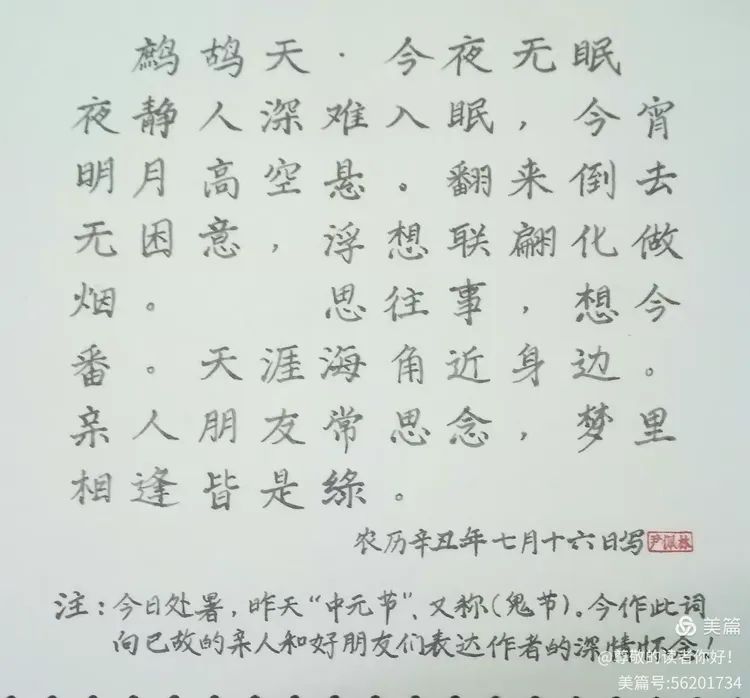 鹧鸪天·今夜无眠
夜静人深难入眠，今宵
明月高空悬。翻来倒去
无困意，浮想联翩化做
烟。 思往事，想今
番。天涯海角近身边。
亲人朋友常思念，梦里
相逢皆是缘。
农历辛丑年七月十六日写 尹佩林
注：今日处暑，昨天“中元节”、又称（鬼节）。今作此词
向已故的亲人和好朋友们表达作者的深情怀念！
美篇
@尊敬的读者你好！
美篇号:56201734